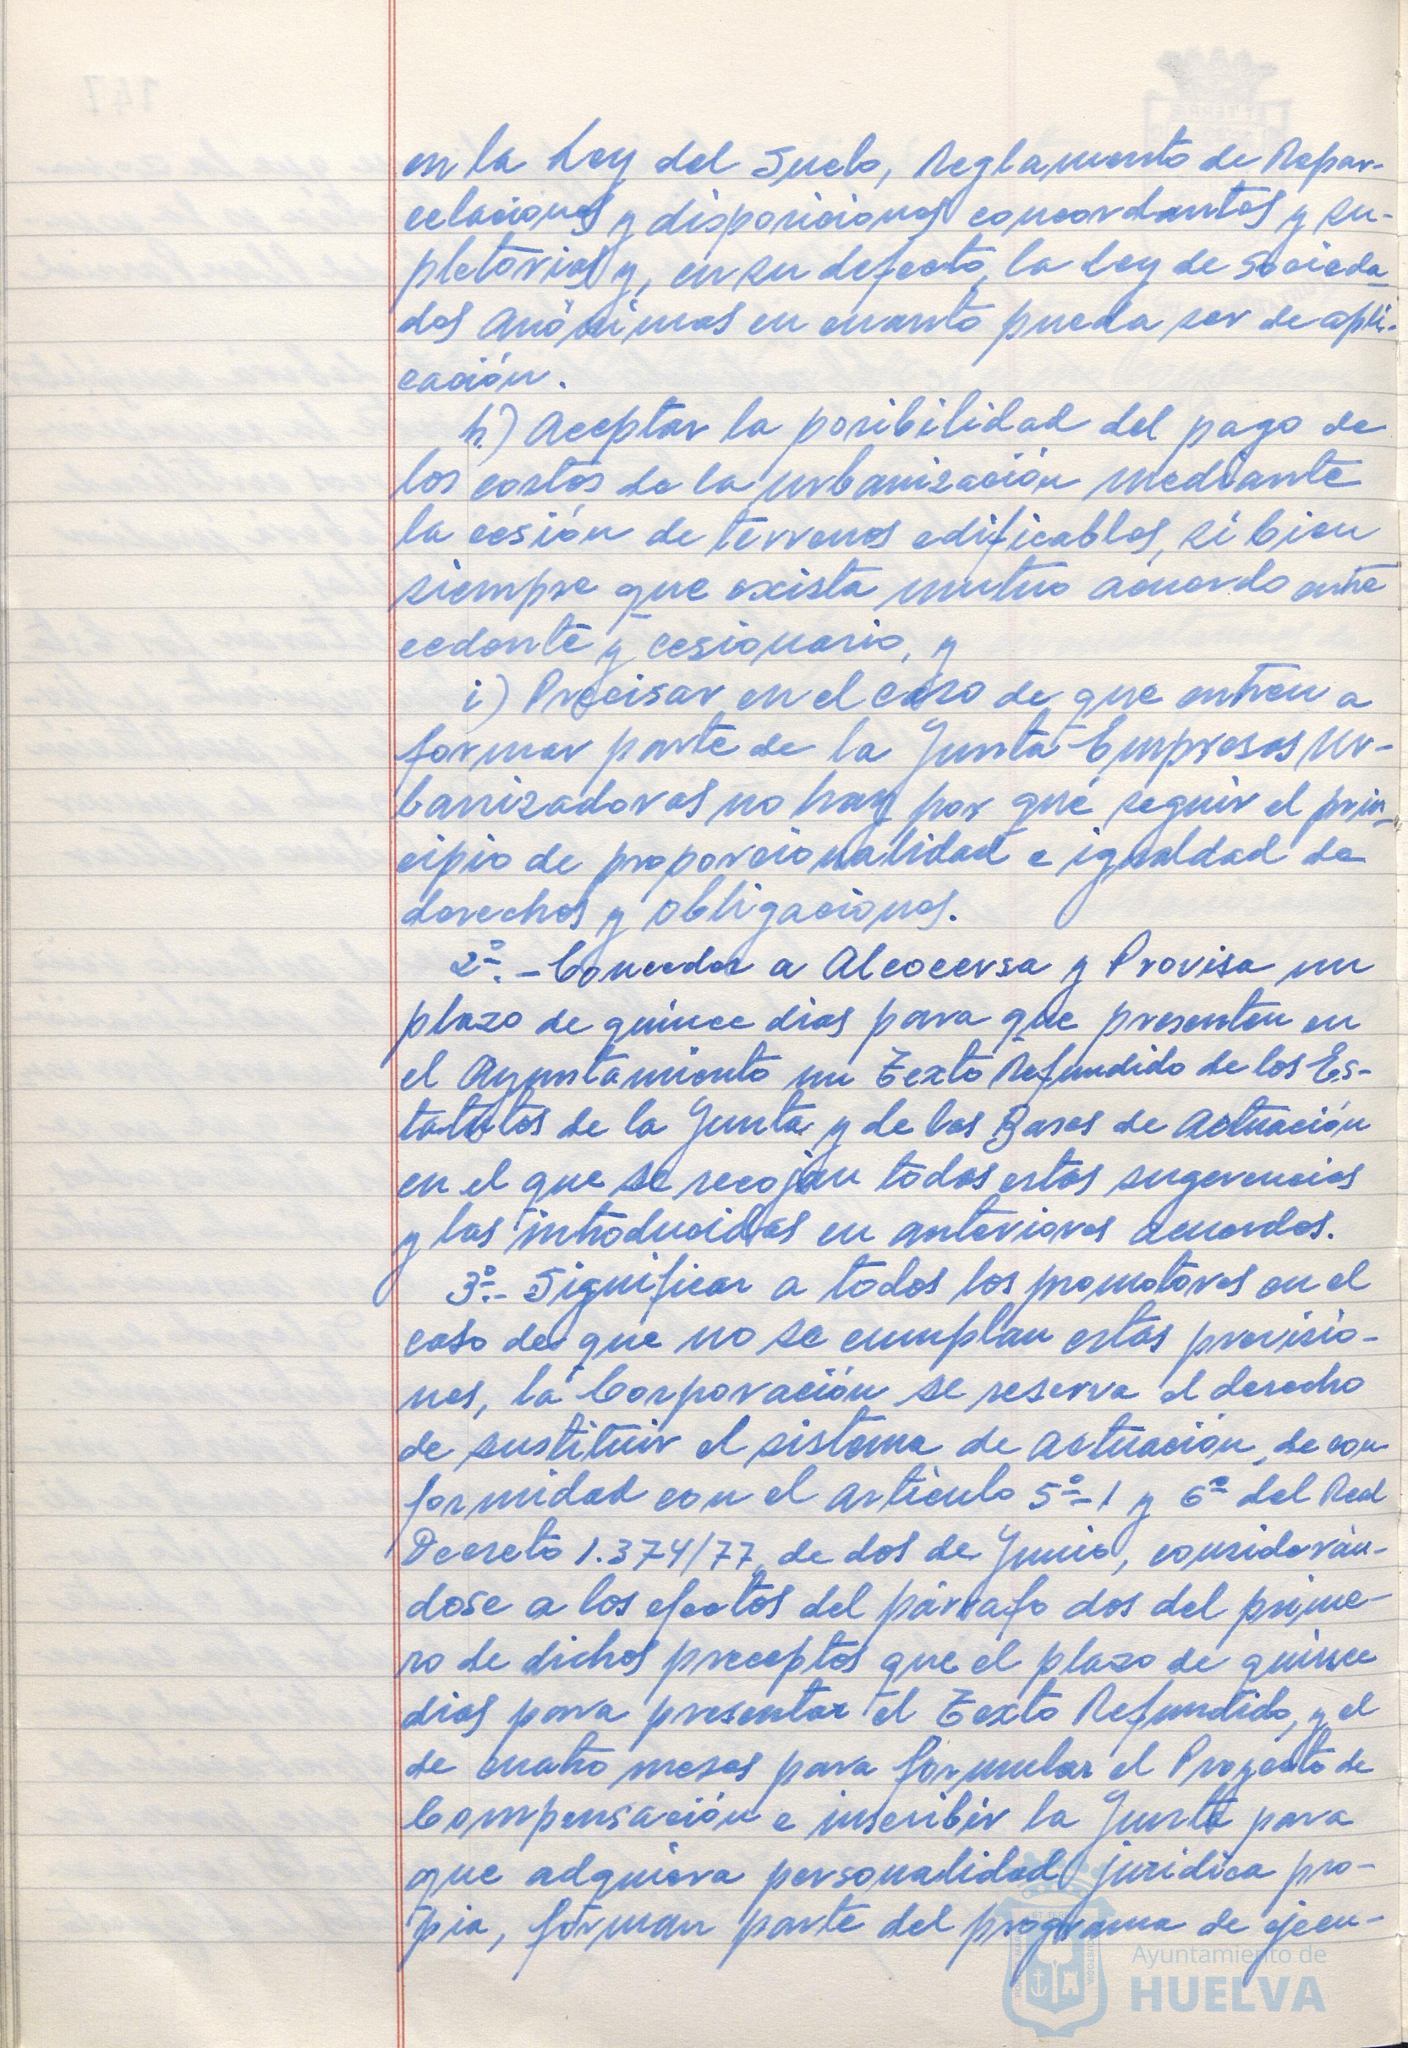 en la Ley del Suelo, Reglamento de Repar-
celaciones y disposiciones concordantes y su-
pletorias y, en su defecto, la Ley de Socieda-
des Anónimas en cuanto pueda ser de apli-
cación.
h) Aceptar la posibilidad del pago de
los costos de la urbanización mediante
la cesión de terrenos edificables, si bien
siempre que exista mutuo acuerdo entre
cedente y cesionario, y
i) Precisar en el caso de que entren a
formar parte de la Junta Empresas Ur-
banizadoras no hay por qué seguir el prin-
cipio de proporcionalidad e igualdad de
derechos y obligaciones.
2º.- Conceder a Alcocersa y Provisa un
plazo de quince dias para que presenten en
el Ayuntamiento un Texto Refundido de los Es-
tatutos de la Junta y de las Bases de Actuación
en el que se recojan todas estas sugerencias
y las introducidas en anteriores acuerdos.
3º.- Significar a todos los promotores en el
caso de que no se cumplan estas previsio-
nes, la Corporación se reserva el derecho
de sustituir el sistema de actuación, de con-
formidad con el artículo 5º-1 y 6º del Real
Decreto 1.374/77, de dos de Junio, considerán-
dose a los efectos del párrafo dos del prime-
ro de dichos preceptos que el plazo de quince
dias para presentar el Texto Refundido, y el
de cuatro meses para formular el Proyecto de
Compensación e inscribir la Junta para
que adquiera personalidad jurídica pro-
pia, forman parte del programa de ejecu-
Ayuntamiento de
HUELVA